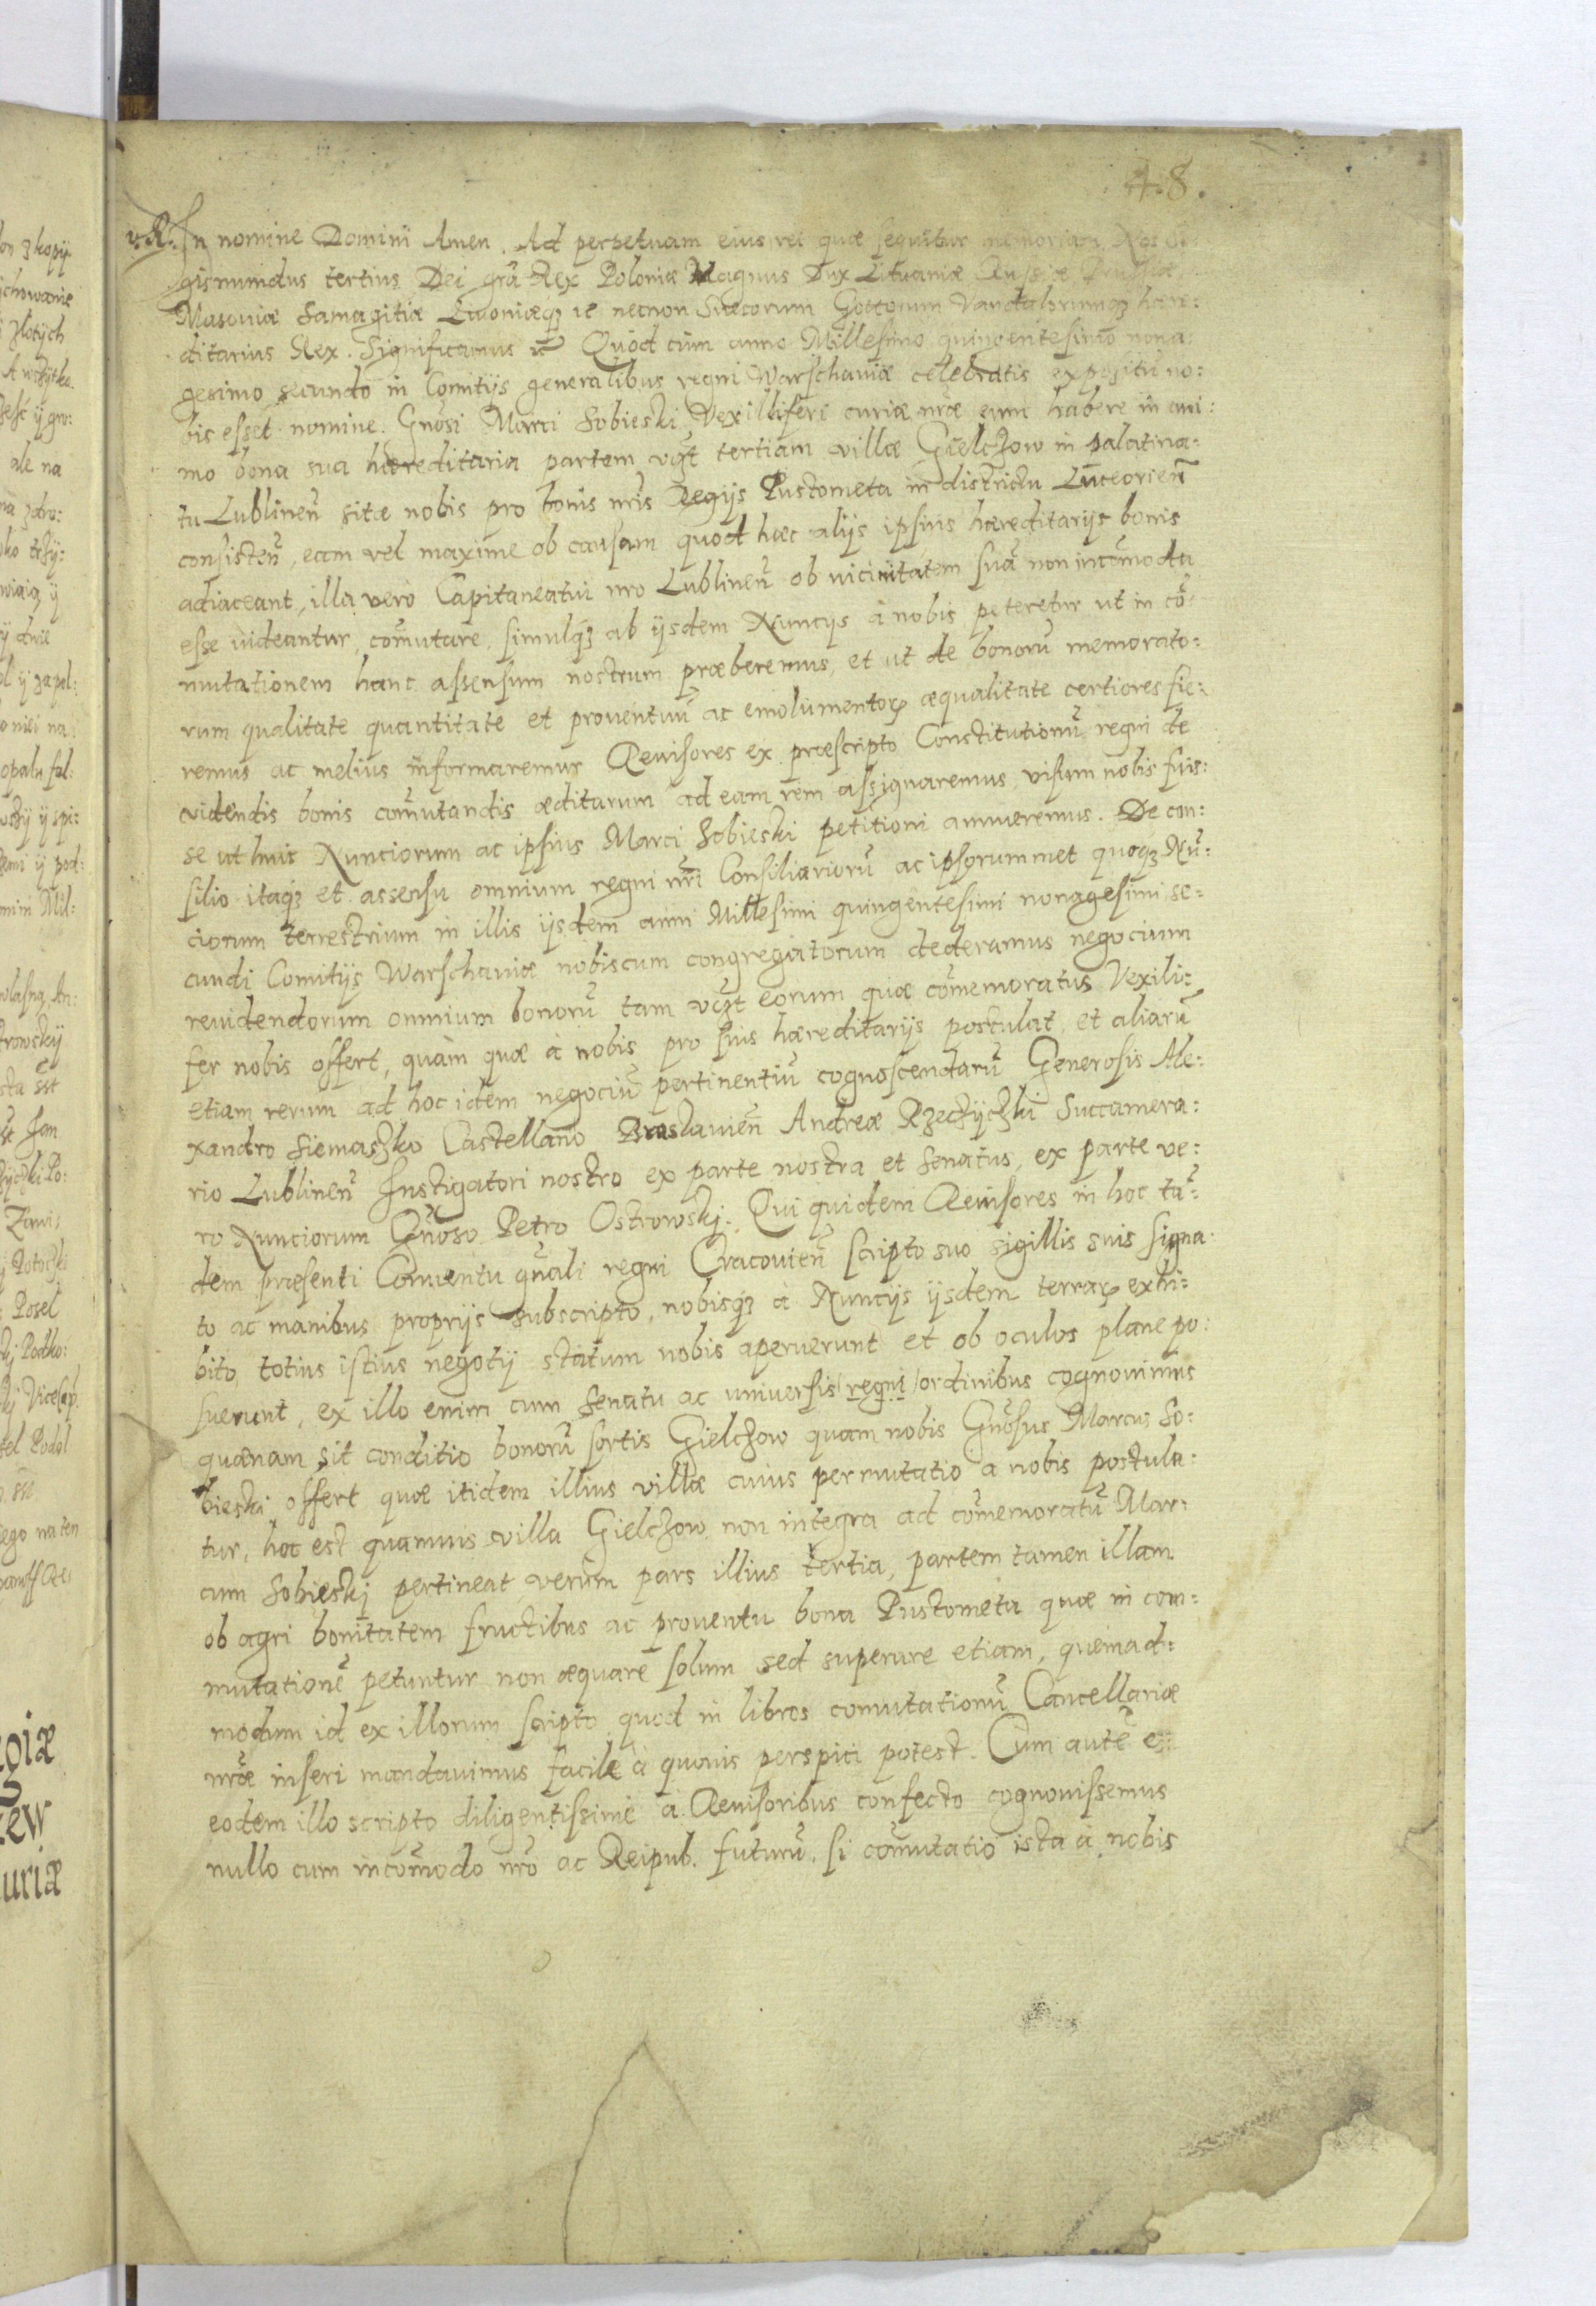 48.
In nomine Domini Amen. Ad perpetuam eius rei quæ sequitur memoriam. Nos Si:
gismundus tertius Dei grã Rex Poloniæ Magnus Dux Lituaniæ Russiæ Prussiæ
Masoviæ Samagitiæ Livoniæqꝫ ꝛc necnon Suecorum Gottorum Vandalorumqꝫ hære:
ditarius Rex. Significamus ꝛc Quod cum anno Millesimo quingentesimo nona:
gesimo secundo in Comitijs generalibus regni Warschaviæ celebratis expositũ no:
bis esset nomine Gnõsi Marci Sobieski Vexilliferi curiæ nræ̃ eum habere in ani:
mo bona sua hæreditaria partem vcꝫt tertiam villæ Gielczow in palatina:
tu Lublineñ sitæ nobis pro bonis nris̃ Regijs Pustometa in districtu Luceorieñ
consisteñ, eam vel maxime ob causam quod hæc alijs ipsius hæreditarijs bonis
adiaceant, illa vero Capitaneatui nrõ Lublineñ ob vicinitatem suã non incõmoda
esse videantur, com̃utare, simulqꝫ ab ijsdem Nuncijs à nobis peteretur ut in cõ:
mutationem hanc assensum nostrum præberemus, et ut de bonorũ memorato:
rum qualitate quantitate et proventuũ ac emolumentoꝝ æqualitate certiores fie:
remus ac melius informaremur Revisores ex præscripto Constitutionũ regni de
videndis bonis com̃utandis æditarum ad eam rem assignaremus, visum nobis fuis:
se ut huic Nunciorum ac ipsius Marci Sobieski petitioni annueremus. De con:
silio itaqꝫ et assensu omnium regni nrĩ Consiliariorũ ac ipsorummet quoqꝫ Nũ:
ciorum terrestrium in illis ijsdem anni Millesimi quingentesimi nonagesimi se:
cundi Comitijs Warschaviæ nobiscum congregatorum dederamus negocium
revidendorum omnium bonorũ tam vcꝫt eorum quæ com̃emoratus Vexili:
fer nobis offert, quàm quæ à nobis pro suis hæreditarijs postulat, et aliarũ
etiam rerum ad hoc idem negociũ pertinentiũ cognoscendarũ Generosis Ale:
xandro Siemaszko Castellano Braslavieñ Andreæ Rzeczyczki Succamera:
rio Lublineñ Instigatori nostro ex parte nostra et Senatus, ex parte ve:
ro Nunciorum Gnõso Petro Ostrowskj. Qui quidem Revisores in hoc tã:
dem præsenti Conventu gnãli regni Cracovieñ scripto suo sigillis suis signa:
to ac manibus proprijs subscripto, nobisqꝫ à Nuncijs ijsdem terraꝝ exhi:
bito, totius istius negotij statum nobis aperuerunt et ob oculos plane po:
suerunt, ex illo enim cum Senatu ac universis regni ordinibus cognovimus
quænam sit conditio bonorũ sortis Gielczow quam nobis Gnõsus Marcus So:
bieski offert quæ itidem illius villæ cuius permutatio a nobis postula:
tur, hoc est quamvis villa Gielczow non integra ad com̃emoratũ Mar:
cum Sobieskj pertineat, verùm pars illius tertia, partem tamen illam
ob agri bonitatem fructibus ac proventu bona Pustometa quæ in com:
mutationẽ petuntur non æquare solum sed superare etiam, quemad:
modum id ex illorum scripto quod in libros comutationũ Cancellariæ
nræ̃ inseri mandavimus facile à quovis perspici potest. Cum autẽ e:
eodem illo scripto diligentissimè à Revisoribus confecto cognovissemus
nullo cum incõmodo nrõ ac Reipub. futurũ, si com̃utatio ista à nobis